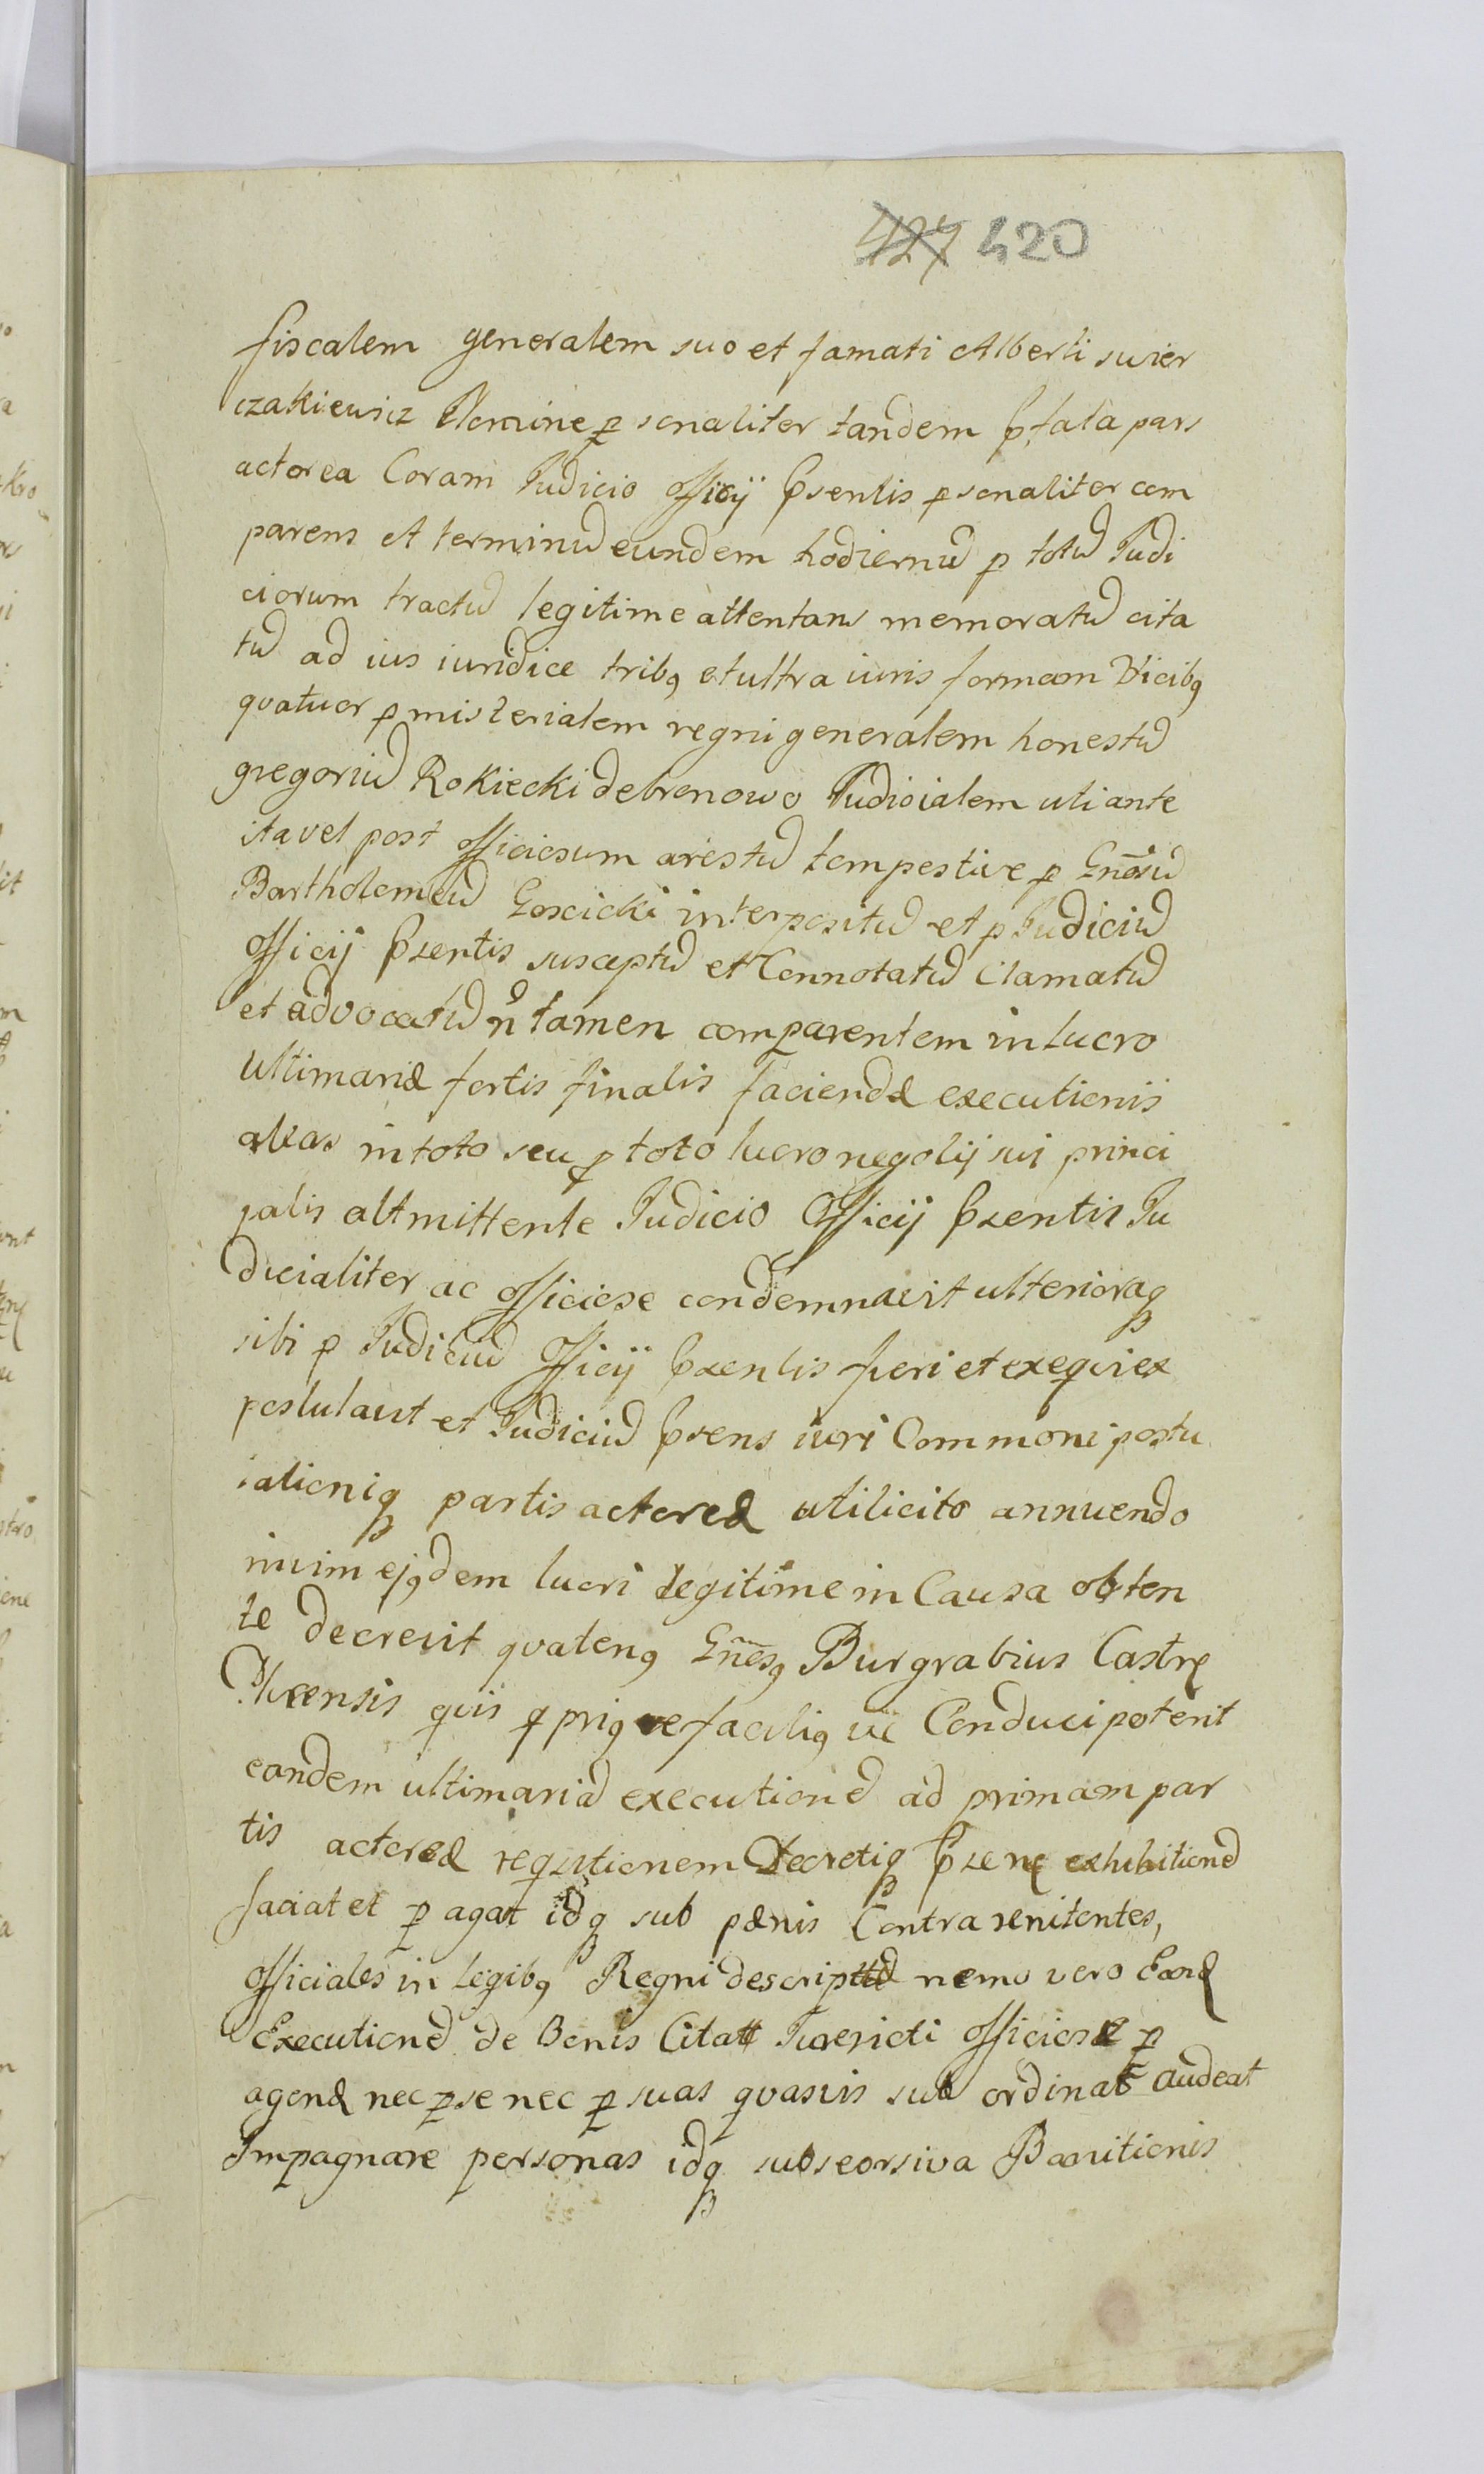 427 420
fiscalem generalem suo et famati Alberti swier
czakiewicz Nomine ꝑsonaliter tandem Pfata pars
actorea Coram Judicio Officij Psentis ꝑsonaliter com
parens et terminū eundem hodiernū ꝑ totū Judi
ciorum tractū legitime attentans memoratū cita
tū ad ius iuridice tribꝫ et ultra iuris formam Vicibꝫ
quatuor ꝑ misterialem regni generalem honestū
gregoriū Rokiecki debronowo Judicialem uti ante
ita vel post officiosum arestū tempestive ꝑ Gñosū
Bartholomeū Goscicki interpositū et ꝑ Judiciū
officij Psentis susceptū et Connotatū Clamatū
et advocatū n̊ tamen comparentem in lucro
ultimariæ fortis finalis faciendæ executionis
alias in toto seu ꝓ toto lucro negotij sui princi
palis altmittente Judicio Officij Psentis Ju
dicialiter ac officiose condemnavit ulterioraqꝫ
sibi ꝑ Judiciū Officij Psentis fieri et exequi ex
postulavit et Judiciū Psens iuri Commoni postu
lationiqꝫ partis actoreæ uti licito annuendo
inuim ejꝫdem lucri legitime in Causa obten
te decrevit quatenꝫ Gñesꝫ Burgrabius Castrꝫ
quis ꝙ priꝫ ve faciliꝫ vc Conduci poterit
eandem ultimariā executionē ad primam par
tis actoreæ reqstionem Decretiqꝫ Psenꝫ exhibitionē
faciat et ꝑ agat idqꝫ sub pænis Contra renitentes,
officiales in legibꝫ Regni descriptis nemo vero Eand
Executionē de Bonis Citatt Jurevicti officiose ꝑ
agend nec ꝑ se nec ꝑ suas quasvis sub ordinat audeat
Impagnare personas idqꝫ sub seorsiva Banitionis